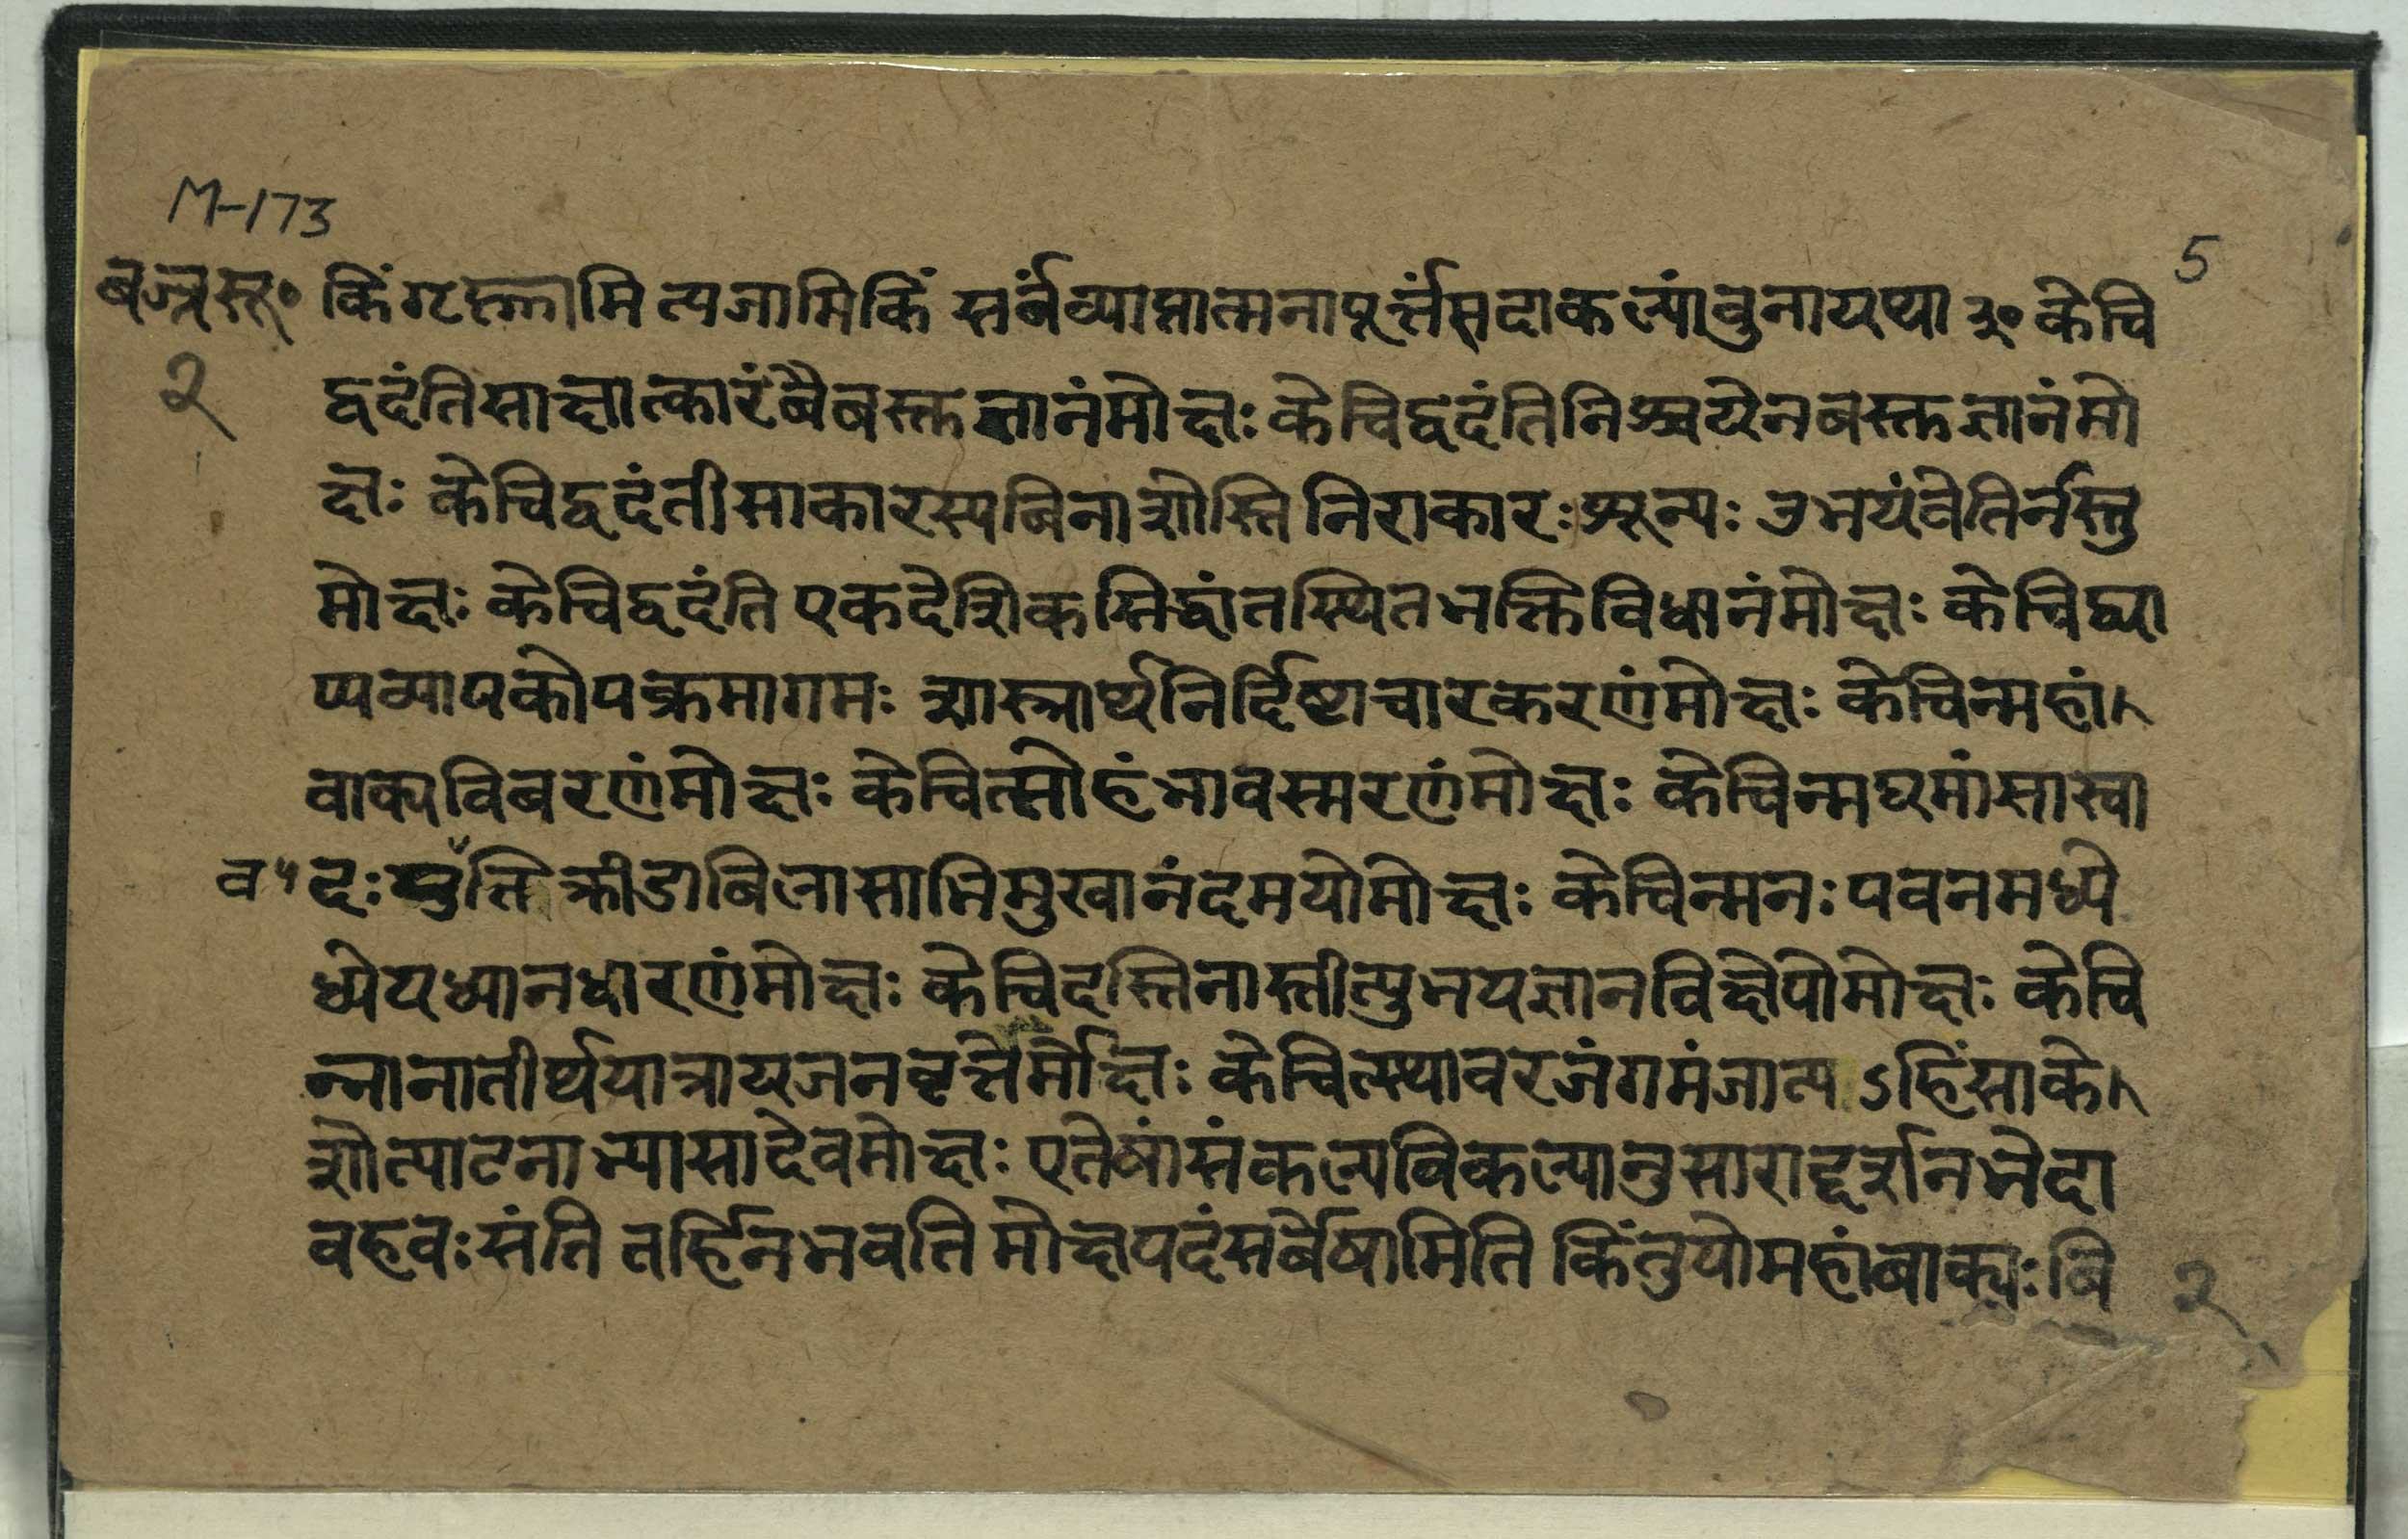 M-173
5
बज्रसू॰ किंगृह्णामि त्यजामिकिं सर्बंव्याप्तात्मनापूर्त्तंसदाकल्पांवुनायथा ३॰ केचि
२
द्वदंतिसाक्षात्कारंबैबस्तुज्ञानंमोक्षः केचिद्वदंतिनिश्चयेनबस्तुज्ञानंमो
क्षः केचिद्वदंतीसाकारस्यबिनाशोस्ति निराकारःशून्यः उभयंवेतिर्नस्तु
मोक्षः केचिद्वदंति एकदेशिकसिद्धांतस्थितभक्तिविधानंमोक्षः केचिद्व्या
प्यव्यापकोपक्रमागमः शास्त्रार्थनिर्दिष्टाचारकरणंमोक्षः केचिन्महां
वाक्यविबरणंमोक्षः केचित्सोहंभावस्मरणंमोक्षः केचिन्मद्यमांसास्वा
दः क्रीडाबिलासाभिमुखानंदमयोमोक्षः केचिन्मनःपवनमध्ये
ध्येयध्यानधारणंमोक्षः केचिदस्तिनास्तीत्युभयज्ञानविक्षेपोमोक्षः केचि
न्नानातीर्थयात्रायजनवृत्तेर्मोक्षः केचित्स्थावरजंगमंजात्य ऽहिंसाके
शोत्पाटनाभ्यासादेवमोक्षः एतेषांसंकल्पविकल्पानुसाराद्दर्शनभेदा
वहवःसंति तर्हिनभवति मोक्षपदंसर्बेषामिति किंतुयोमहांबाक्यःबि
२